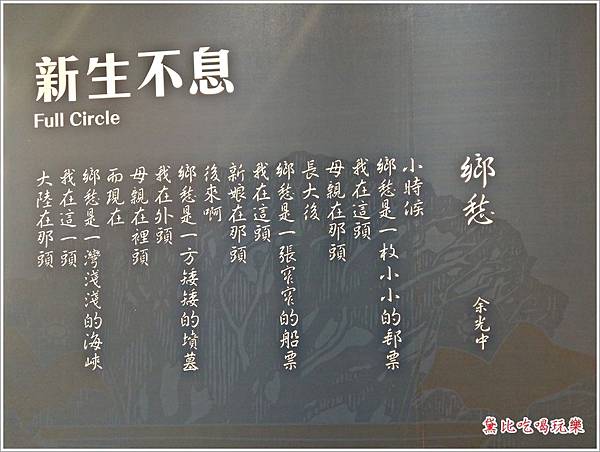 新生不息
Full Circle
鄉愁
余光中
小時候
鄉愁是一枚小小的郵票
我在這頭
母親在那頭
長大後
鄉愁是一張窄窄的船票
我在這頭
新娘在那頭
後來啊
鄉愁是一方矮矮的墳墓
我在外頭
母親在裡頭
而現在
鄉愁是一灣淺淺的海峽
我在這一頭
大陸在那頭
黛比吃喝玩樂